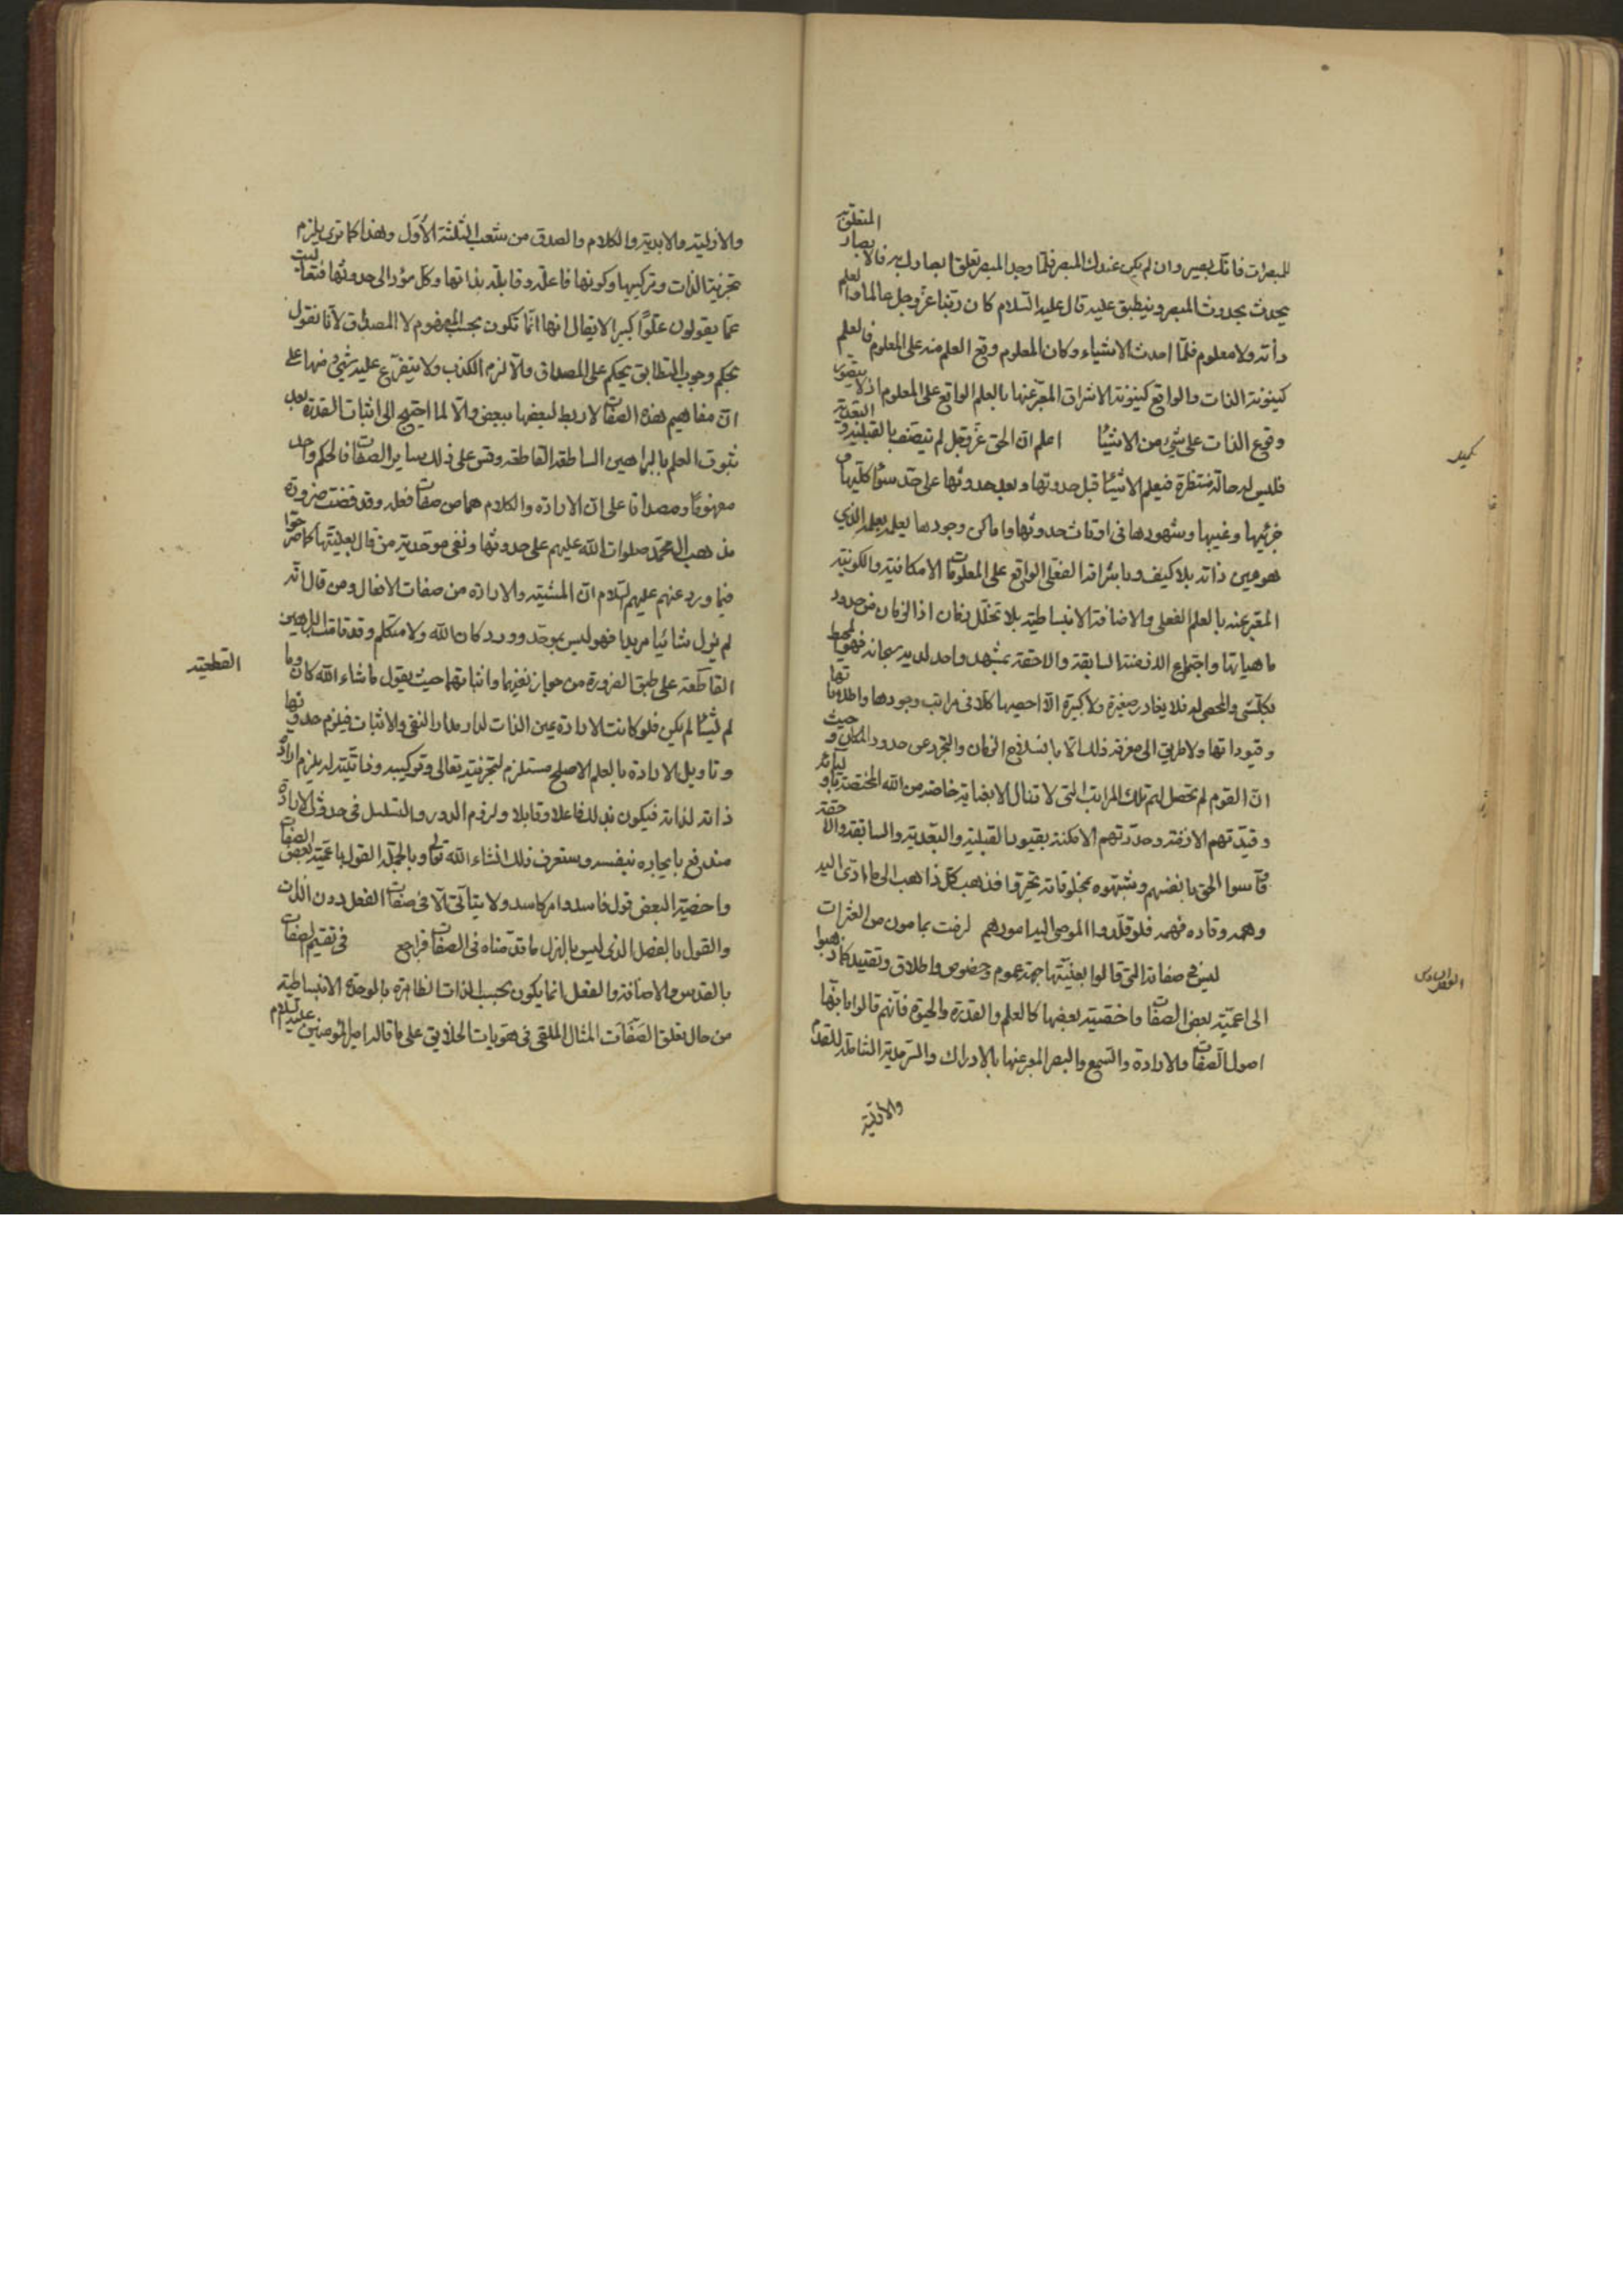 للمبصرات فانك بصير وان لم يكن عندك المبصر فلما وجد المبصر تعلق ابصارك به فالابصار المتعلق به
يحدث بحدوث المبصر وينطبق عليه قال عليه السلام كان ربنا عز وجل عالما والعلم
ذاته ولا معلوم فلما احدث الاشياء وكان المعلوم وقع العلم منه على المعلوم فالعلم
كينونة الذات والواقع كينونة الاشراق المعبر عنها بالعلم الواقع على المعلوم اذ لا يتصور
وقوع الذات على شيء من الاشياء اعلم ان الحق عز وجل لم يتصف بالقبلية والبعدية
فليس له حالة منتظرة فيعلم الاشياء قبل حدوثها وبعد حدوثها على حد سواء كليها و
جزئيها وغيبها وشهودها في اوقات حدوثها واماكن وجودها يعلمه بعلمه الذي
هو عين ذاته بلا كيف وباشراقه الفعلي الواقع على المعلومات الامكانية والكونية
المعبر عنه بالعلم الفعلي والاضافة الانبساطية بلا تخلل زمان اذ الزمان من حدود
ماهياتها واجتماع الازمنة السابقة والاحقة بمشهد واحد لديه سبحانه فهو المحيط
بكل شيء والمحصي له فلا يغادر صغيرة ولا كبيرة الا احصيها كلا في مراتب وجودها واطلاقاتها
وقيوداتها ولا طريق الى معرفة ذلك الا بانسلاخ الزمان والتجرد عن حدود المكان وحيث
ان القوم لم تحصل لهم تلك المراتب التي لا تنال الا بعناية خاصة من الله المختصة باوليائه
وقيدتهم الازمنة وحددتهم الامكنة بقيود القبلية والبعدية والسابقة والاحقة
قاسوا الحق بانفسهم وشبهوه بمخلوقاته تحيروا فذهب كل ذاهب الى ما ادى اليه
وهمه وقاده فهمه فلو قلدوا الموصى اليه امورهم لزمت بمامون من العثرات
ليس في صفاته التي قالوا بعينيتها جهة عموم وخصوص واطلاق وتقييد كما ذهبوا
الى اعمية بعض الصفات واخصية بعضها كالعلم والقدرة والحيوة فانهم قالوا بانها
اصول الصفات والارادة والسمع والبصر المعبر عنها بالادراك والسرمدية الشاملة للقدم
والازلية
الفصل السادس
والازلية والابدية والكلام والصدق من شعب الثلثة الاول وهذا كما ترى يلزم
تجزية الذات وتركيبها وكونها فاعلة وقابلة بذاتها وكل مؤد الى حدوثها فتعالت
عما يقولون علوا كبيرا لا يقال انها انما تكون بحسب المفهوم لا المصداق لانا نقول
بحكم وجوب التطابق يحكم على المصداق والا لزم الكذب ولا يتفرع عليه شيء منها على
ان مفاهيم هذه الصفات لا ربط لبعضها ببعض والا لما احتيج الى اثبات القدرة بعد
ثبوت العلم بالبراهين الساطعة القاطعة وقس على ذلك ساير الصفات فالحكم واحد
مفهوما ومصداقا على ان الارادة والكلام هما من صفات فعله وقد قضت ضرورة
مذهب ال محمد صلوات الله عليهم على حدوثها ونفي موحدية من قال بعينيتها كما صرحوا
فيما ورد عنهم عليهم السلام ان المشية والارادة من صفات الافعال ومن قال انه
لم يزل شائيا مريدا فهو ليس بموحد وورد كان الله ولا متكلم وقد قامت البراهين
القاطعة على طبق الضرورة من جواز نفيها واثباتها حيث يقول ما شاء الله كان وما
القطعية
لم يشأ لم يكن فلو كانت الارادة عين الذات لدار مدار النفي والاثبات فيلزم حدوثها
وتاويل الارادة بالعلم الاصلح مستلزم لتجزيته تعالى وتركيبه وذاتيته له يلزم ارادة
ذاته لذاته فيكون بذلك فاعلا وقابلا ولزوم الدور والتسلسل في حدوث الارادة
مندفع بايجاده بنفسه وستعرف ذلك انشاء الله تعالى وبالجملة القول باعمية بعض الصفات
واخصية البعض قول فاسد وامر كاسد ولا يتاتى الا في صفات الفعل دون الذات
والقول بالفصل الذي ليس بالهزل ما قدمناه في الصفات فراجع في تقسيم الصفات
بالقدس والاضافة والفعل انما يكون بحسب الذات الظاهرة بالوحدة الانبساطية
من حال تعلق الصفات المثال الملقى في هويات الخلايق على ما قاله امير المؤمنين عليه السلام